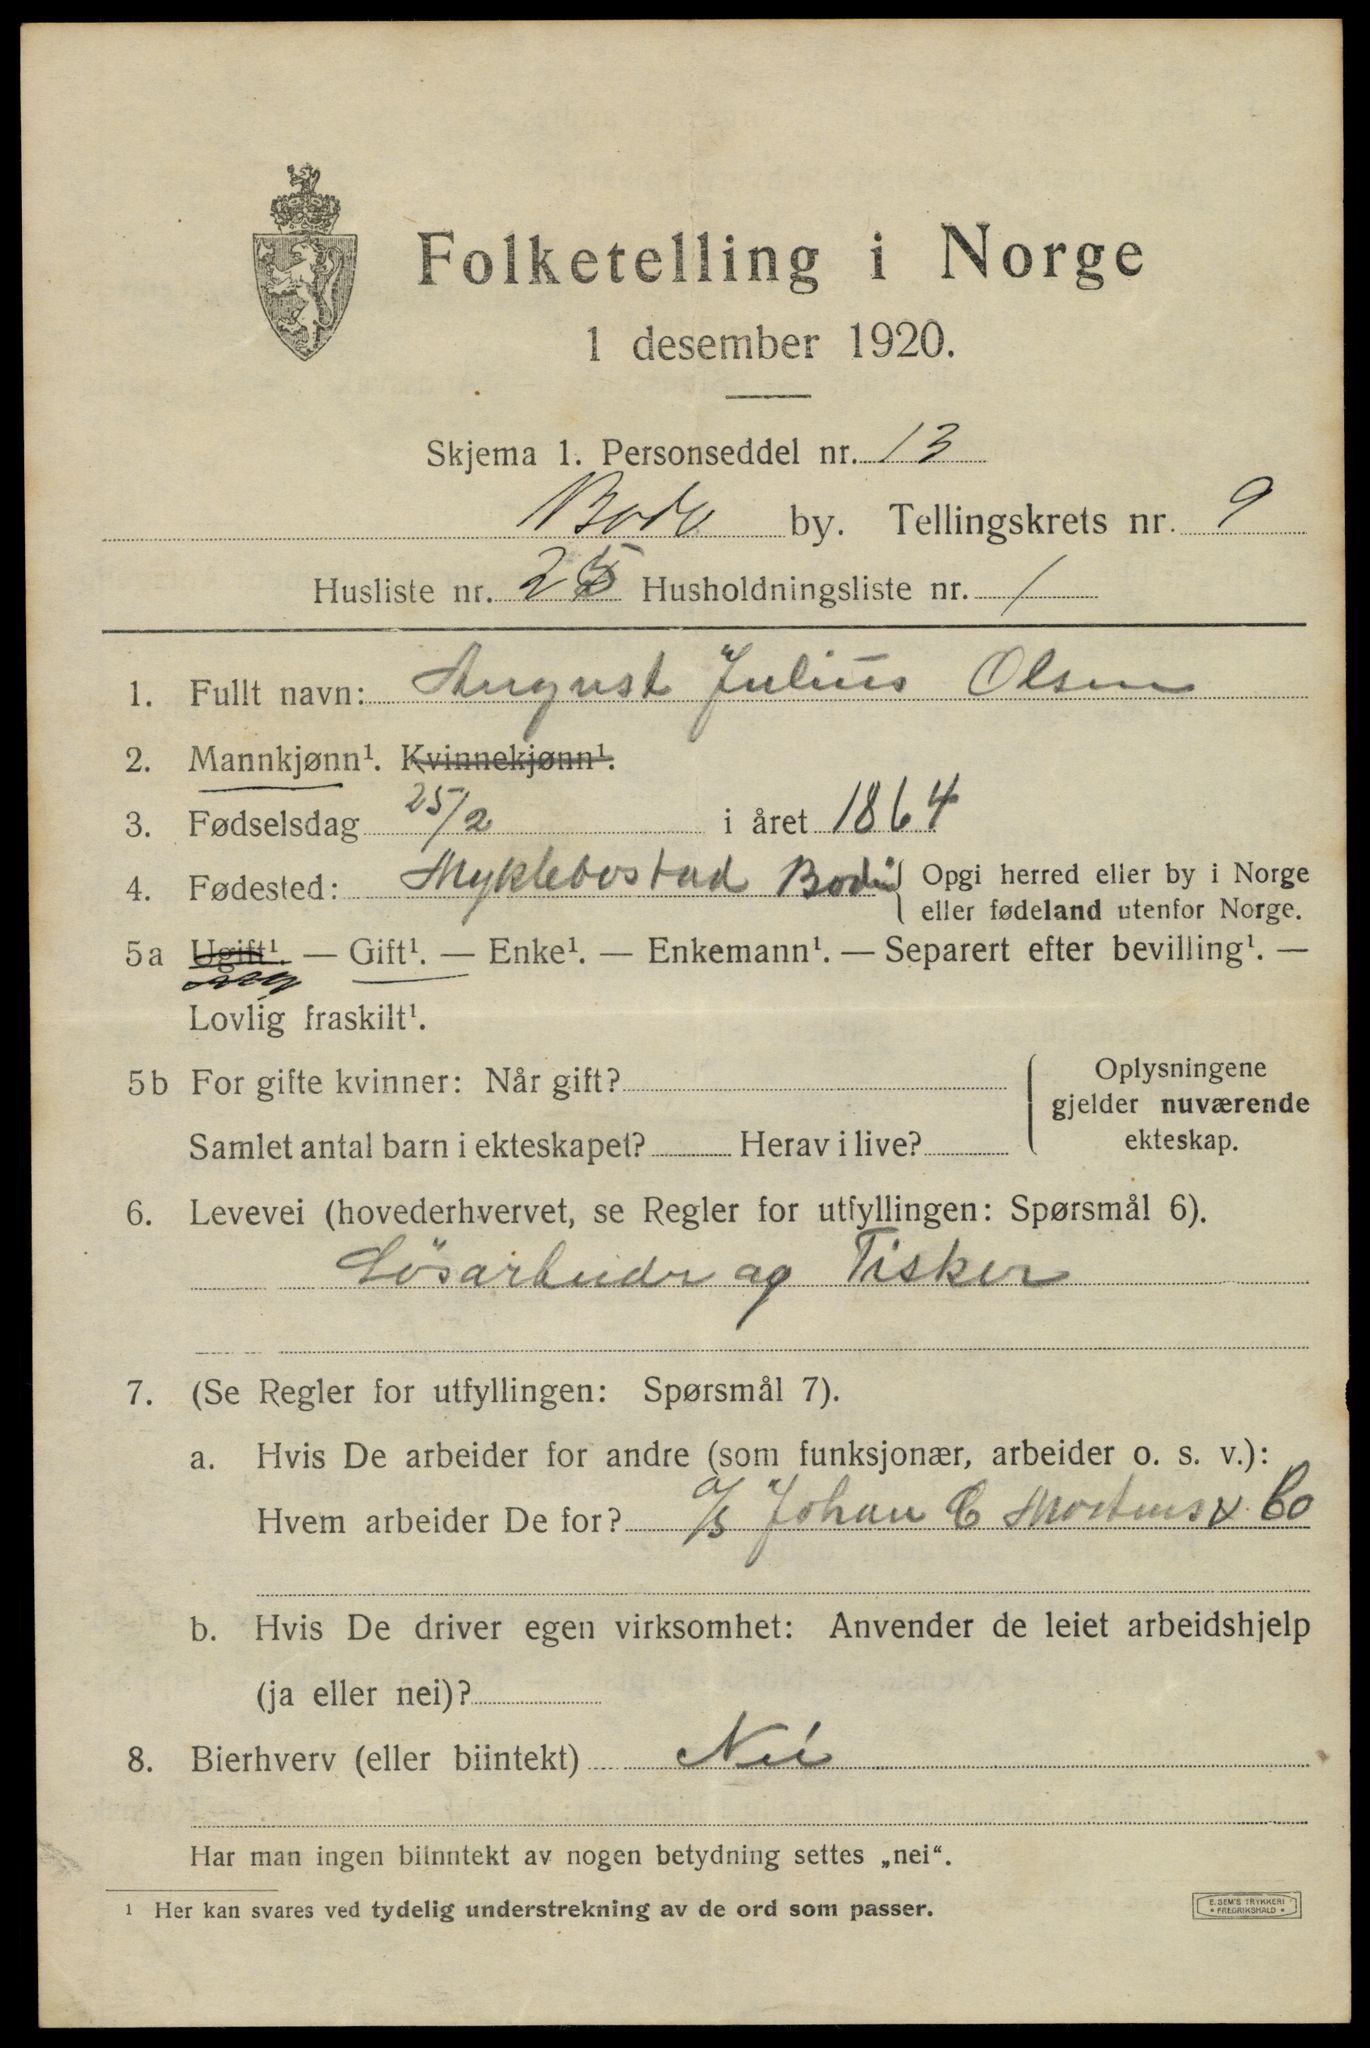 Folketelling i Norge
1 desember 1920.
Skjema 1. Personseddel nr. 13
Bodø by. Tellingskrets nr. 9
Husliste nr. 25 Husholdningsliste nr. 1
1. Fullt navn: August Julius Olsen
2. Mannkjønn¹. Kvinnekjønn¹.
3. Fødselsdag 25/2 i året 1864
4. Fødested: Myklebostad Bodin Opgi herred eller by i Norge
eller fødeland utenfor Norge.
5a Ugift¹. — Gift¹. — Enke¹. — Enkemann¹. — Separert efter bevilling¹. —
Lovlig fraskilt¹.
5b For gifte kvinner: Når gift? Oplysningene
gjelder nuværende
Samlet antal barn i ekteskapet? Herav i live? ekteskap.
6. Levevei (hovederhvervet, se Regler for utfyllingen: Spørsmål 6).
Løsarbeider og Fisker
7. (Se Regler for utfyllingen: Spørsmål 7).
a. Hvis De arbeider for andre (som funksjonær, arbeider o. s. v.):
Hvem arbeider De for? a/s Johan C Mortens & Co
b. Hvis De driver egen virksomhet: Anvender de leiet arbeidshjelp
(ja eller nei)?
8. Bierhverv (eller biintekt) Nei
Har man ingen biinntekt av nogen betydning settes „nei“.
¹ Her kan svares ved tydelig understrekning av de ord som passer.
E. SEM'S TRYKKERI
• FREDRIKSHALD •